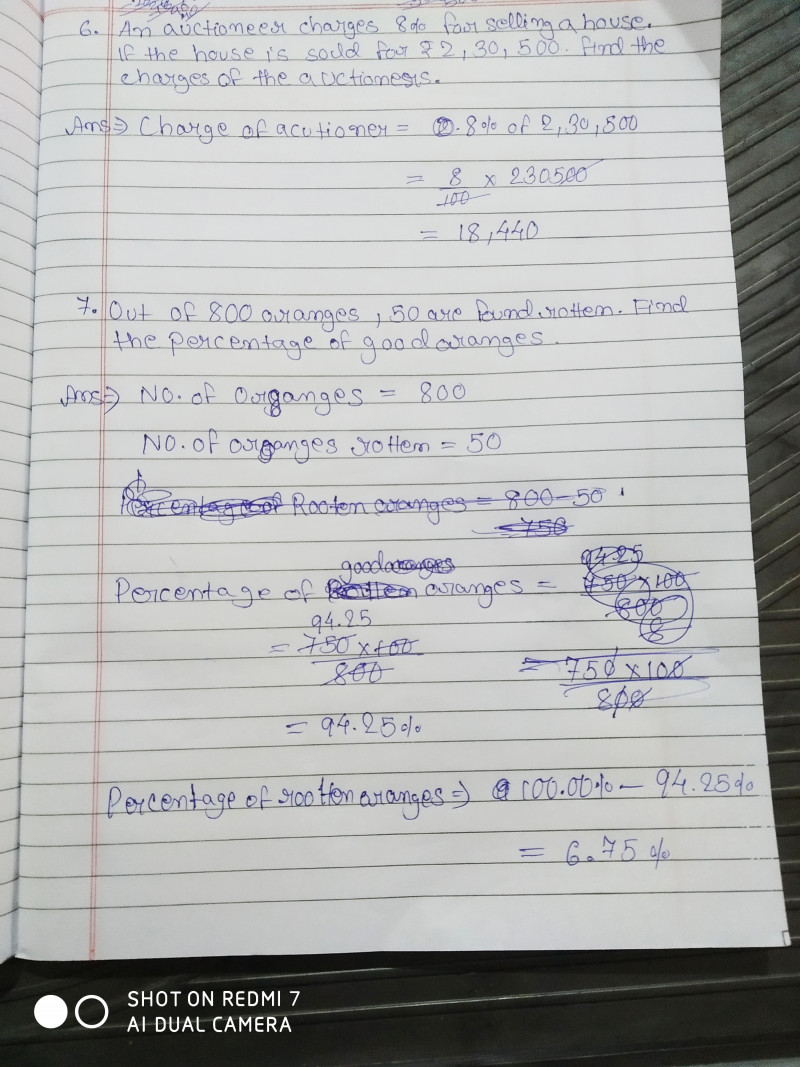 6. An auctioneer charges 8% for selling a house.
If the house is sould for ₹ 2,30,500. find the
charges of the auctioneers.
Ans⇒ Charge of acutioner = 8% of 2,30,500
= 8/100 x 230500
= 18,440
7. Out of 800 oranges, 50 are found rotten. Find
the percentage of good oranges.
Ans⇒ NO. of Organges = 800
NO. of organges rotten = 50
Percentage of Rooten oranges = 800-50
= 750
good oranges
Percentage of oranges = 750 x 100
94.25
800
8
94.25
= 750 x 100
800
= 750 x 100
800
= 94.25%
Percentage of rootten oranges ⇒ 100.00% - 94.25%
= 6.75%
SHOT ON REDMI 7
AI DUAL CAMERA